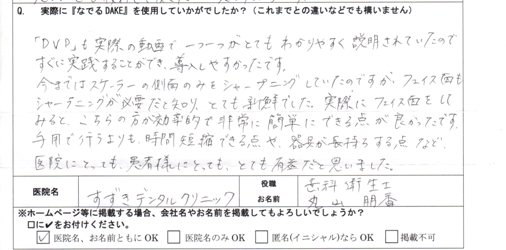 Q. 実際に『なでるDAKE』を使用していかがでしたか？（これまでとの違いなどでも構いません）
「DVD」も実際の動画で一つ一つがとてもわかりやすく説明されていたので
すぐに実践することができ、導入しやすかったです。
今まではスケーラーの側面のみをシャープニングしていたのですが、フェイス面も
シャープニングが必要だと知り、とても新鮮でした。実際にフェイス面をして
みると、こちらの方が効率的で非常に簡単にできる点が良かったです。
手用で行うよりも、時間短縮できる点や、器具が長持ちする点など、
医院にとっても、患者様にとっても、とても有益だと思いました。
医院名 すずきデンタルクリニック 役職 歯科衛生士
お名前 丸山 朋香
※ホームページ等に掲載する場合、会社名やお名前を掲載してもよろしいでしょうか？
□に✔をお付けください。
☑ 医院名、お名前ともにOK □ 医院名のみOK □ 匿名(イニシャル)ならOK □ 掲載不可